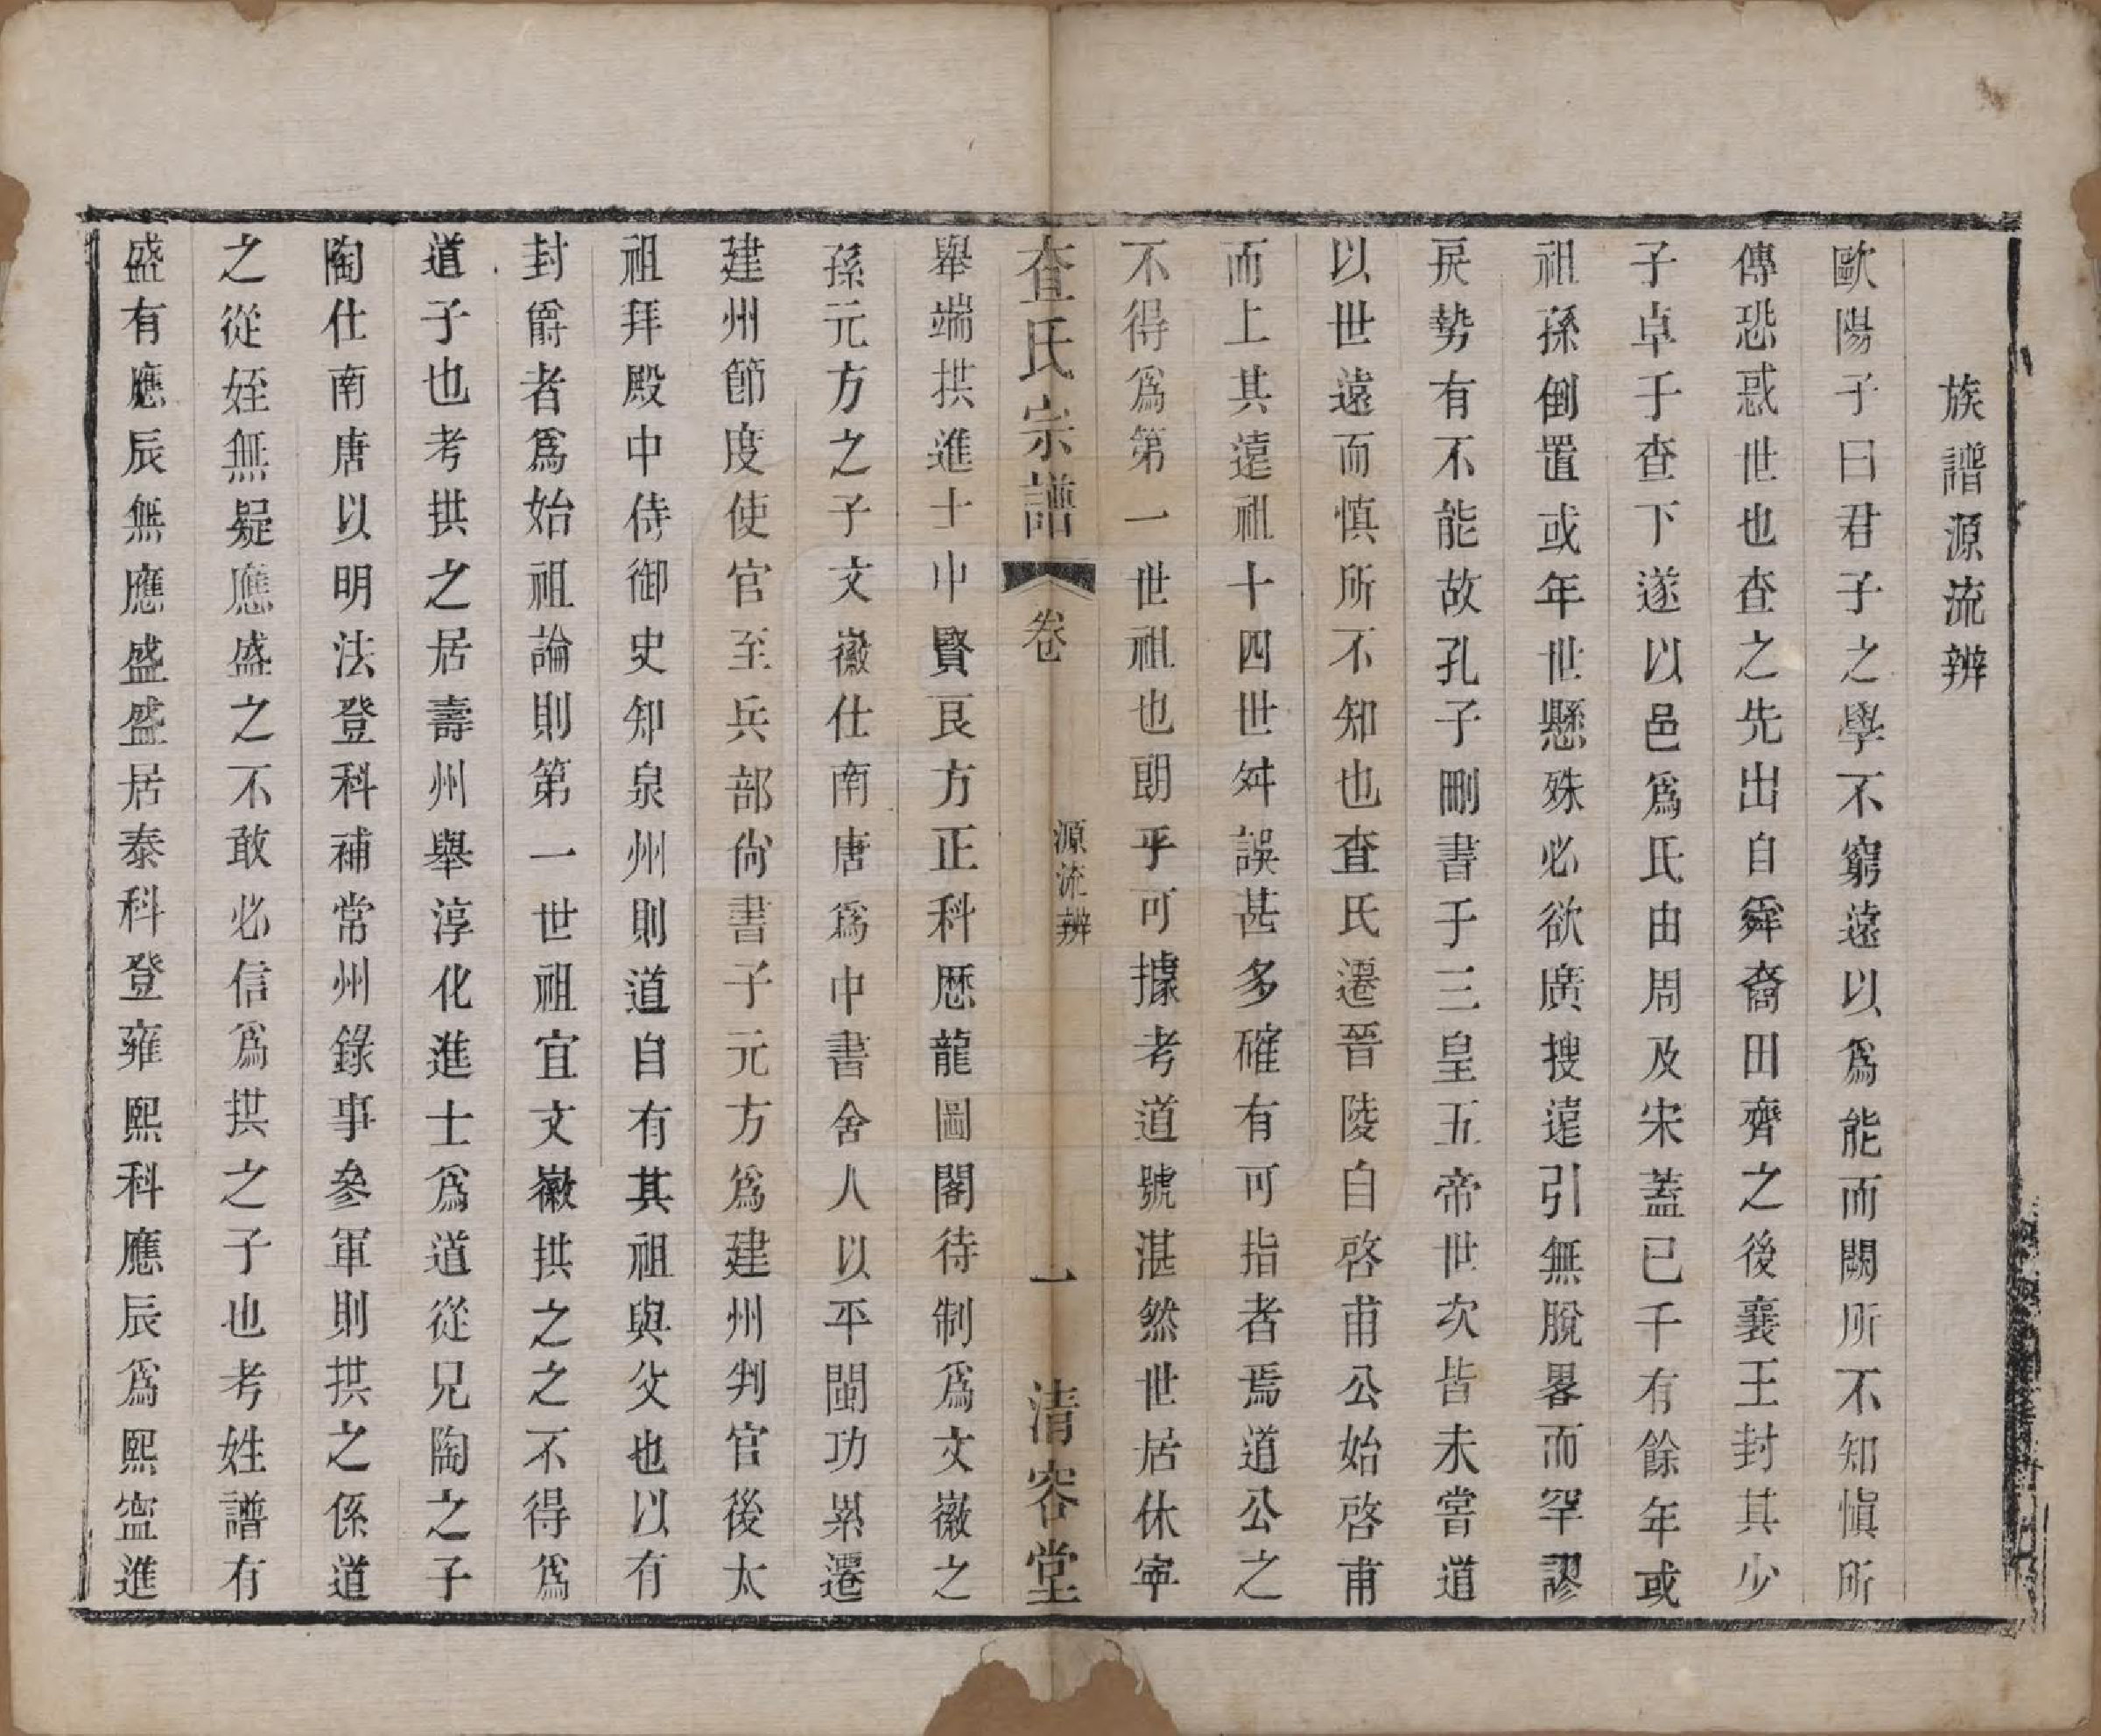 族譜源流辨
歐陽子曰君子之學不窮遠以爲能而闕所不知愼所
傳恐惑世也查之先出自舜裔田齊之後襄王封其少
子卓于查下遂以邑爲氏由周及宋蓋已千有餘年或
祖孫倒置或年世懸殊必欲廣搜遠引無脫畧而罕謬
戾勢有不能故孔子刪書于三皇五帝世次皆未嘗道
以世遠而慎所不知也查氏遷晉陵自啓甫公始啓甫
而上其遠祖十四世舛誤甚多確有可指者焉道公之
不得爲第一世祖也朗乎可據考道號湛然世居休寧
查氏宗譜
卷
源流辨
一
清容堂
舉端拱進士中賢良方正科歷龍圖閣待制爲文徽之
孫元方之子文徽仕南唐爲中書舍人以平閩功累遷
建州節度使官至兵部尙書子元方爲建州判官後太
祖拜殿中侍御史知泉州則道自有其祖與父也以有
封爵者爲始祖論則第一世祖宜文徽拱之之不得爲
道子也考拱之居壽州舉淳化進士爲道從兄陶之子
陶仕南唐以明法登科補常州錄事參軍則拱之係道
之從姪無疑應盛之不敢必信爲拱之子也考姓譜有
盛有應辰無應盛盛居泰科登雍熙科應辰爲熙寍進